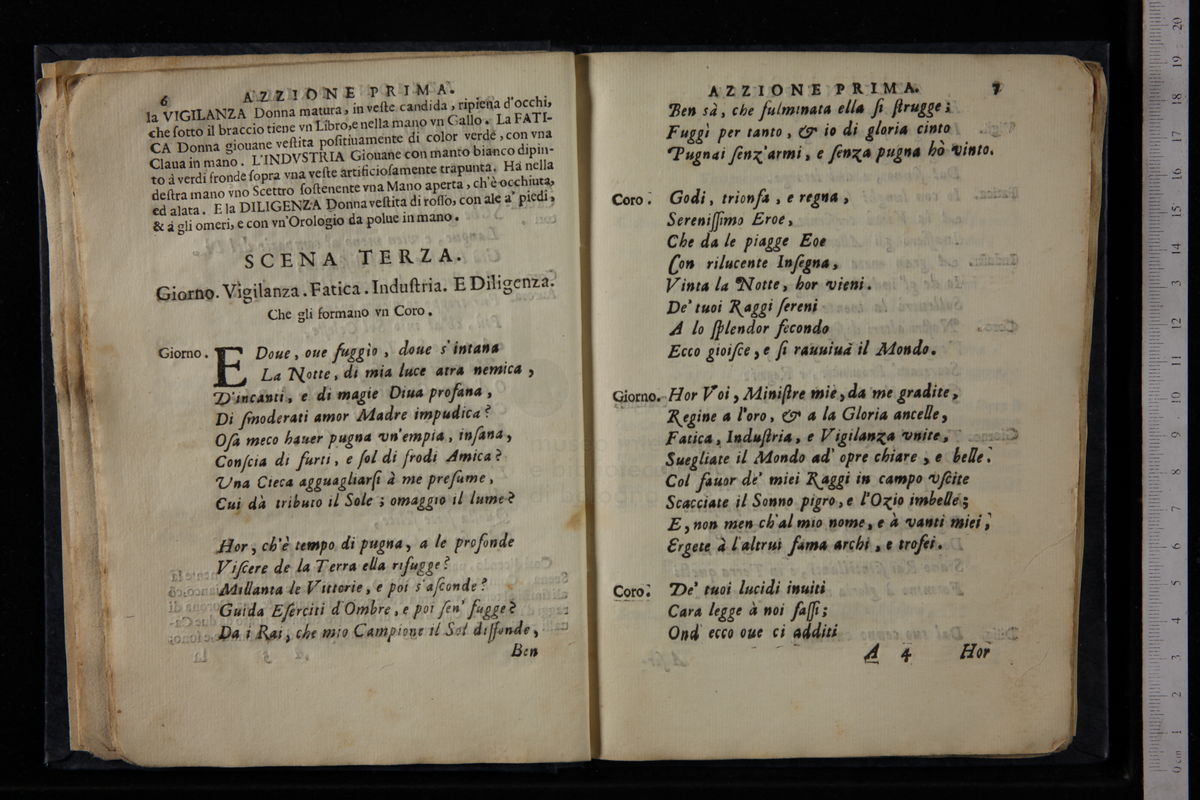 6 AZZIONE PRIMA.
la VIGILANZA Donna matura, in veſte candida, ripiena d'occhi,
che ſotto il braccio tiene vn Libro, e nella mano vn Gallo. La FATI-
CA Donna giouane veſtita poſitiuamente di color verde, con vna
Claua in mano. L'INDVSTRIA Giouane con manto bianco dipin-
to à verdi fronde ſopra vna veſte artificioſamente trapunta. Hà nella
deſtra mano vno Scettro ſoſtenente vna Mano aperta, ch'è occhiuta,
ed alata. E la DILIGENZA Donna veſtita di roſſo, con ale a' piedi,
& à gli omeri, e con vn'Orologio da polue in mano.
SCENA TERZA.
Giorno. Vigilanza. Fatica. Induſtria. E Diligenza.
Che gli formano vn Coro.
Giorno. E Doue, oue fuggìo, doue s'intana
La Notte, di mia luce atra nemica,
D'incanti, e di magie Diua profana,
Di ſmoderati amor Madre impudica?
Oſa meco hauer pugna vn'empia, inſana,
Conſcia di furti, e ſol di frodi Amica?
Vna Cieca agguagliarſi à me preſume,
Cui dà tributo il Sole; omaggio il lume?
Hor, ch'è tempo di pugna, a le profonde
Viſcere de la Terra ella rifugge?
Millanta le Vittorie, e poi s'aſconde?
Guida Eſerciti d'Ombre, e poi ſen' fugge?
Da i Rai, che mio Campione il Sol diffonde,
Ben
AZZIONE PRIMA. 7
Ben sà, che fulminata ella ſi ſtrugge;
Fuggì per tanto, & io di gloria cinto
Pugnai ſenz'armi, e ſenza pugna hò vinto.
Coro. Godi, trionfa, e regna,
Sereniſſimo Eroe,
Che da le piagge Eoe
Con rilucente Inſegna,
Vinta la Notte, hor vieni.
De' tuoi Raggi ſereni
A lo ſplendor fecondo
Ecco gioiſce, e ſi rauuiua il Mondo.
Giorno. Hor Voi, Miniſtre mie, da me gradite,
Regine a l'oro, & a la Gloria ancelle,
Fatica, Induſtria, e Vigilanza vnite,
Suegliate il Mondo ad' opre chiare, e belle.
Col fauor de' miei Raggi in campo vſcite
Scacciate il Sonno pigro, e l'Ozio imbelle;
E, non men ch'al mio nome, e à vanti miei,
Ergete à l'altrui fama archi, e trofei.
Coro. De' tuoi lucidi inuiti
Cara legge à noi faſſi;
Ond' ecco oue ci additi
A 4 Hor